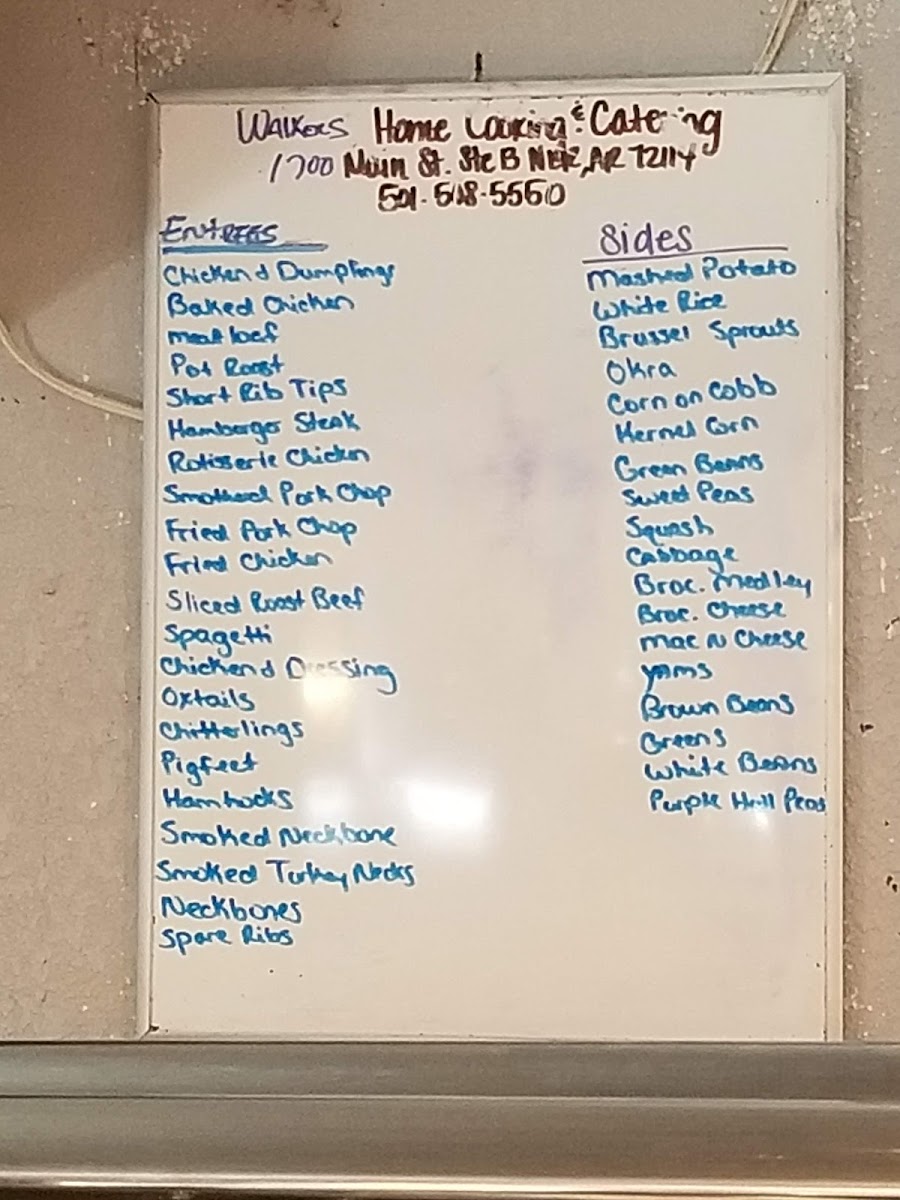 Walkers Home Cooking & Catering
1700 Main St. Ste B NLR, AR 72114
501-508-5550
Entrees
Chicken & Dumplings
Baked Chicken
meat loef
Pot Roast
Short Rib Tips
Hamberger Steak
Rotisserie Chicken
Smothered Pork Chop
Fried Pork Chop
Fried Chicken
Sliced Roast Beef
Spagetti
Chicken & Dressing
Oxtails
Chitterlings
Pigfeet
Hamhocks
Smoked Neckbone
Smoked Turkey Necks
Neckbones
Spare Ribs
Sides
Mashed Potato
White Rice
Brussel Sprouts
Okra
Corn on Cobb
Kernel Corn
Green Beans
Sweet Peas
Squash
Cabbage
Broc. Medley
Broc. Cheese
Mac N Cheese
Yams
Brown Beans
Greens
White Beans
Purple Hull Peas